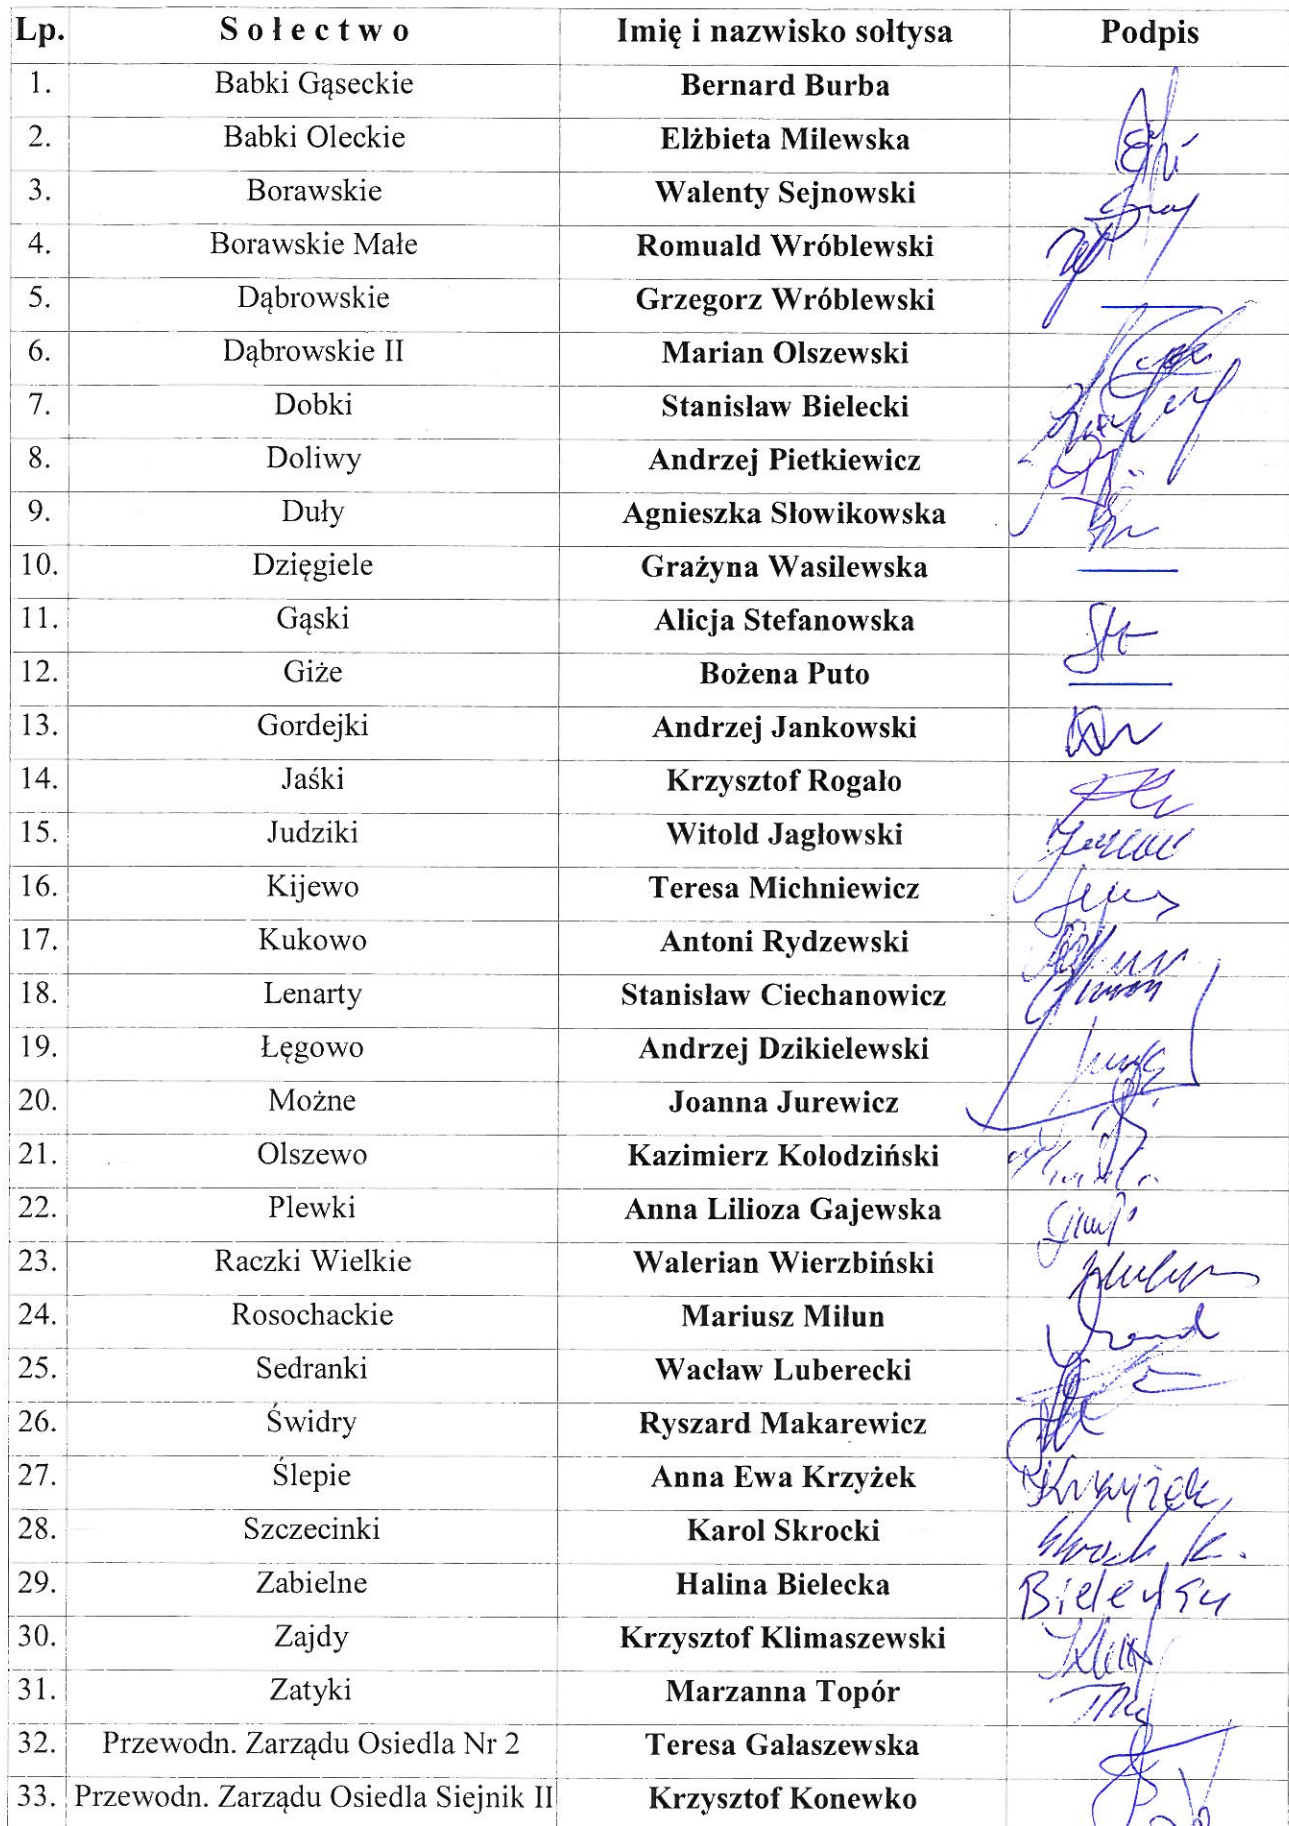 Lp. Sołectwo Imię i nazwisko sołtysa Podpis
1. Babki Gąseckie Bernard Burba
2. Babki Oleckie Elżbieta Milewska
3. Borawskie Walenty Sejnowski
4. Borawskie Małe Romuald Wróblewski
5. Dąbrowskie Grzegorz Wróblewski
6. Dąbrowskie II Marian Olszewski
7. Dobki Stanisław Bielecki
8. Doliwy Andrzej Pietkiewicz
9. Duły Agnieszka Słowikowska
10. Dzięgiele Grażyna Wasilewska
11. Gąski Alicja Stefanowska
12. Giże Bożena Puto
13. Gordejki Andrzej Jankowski
14. Jaśki Krzysztof Rogało
15. Judziki Witold Jagłowski
16. Kijewo Teresa Michniewicz
17. Kukowo Antoni Rydzewski
18. Lenarty Stanisław Ciechanowicz
19. Łęgowo Andrzej Dzikielewski
20. Możne Joanna Jurewicz
21. Olszewo Kazimierz Kołodziński
22. Plewki Anna Lilioza Gajewska
23. Raczki Wielkie Walerian Wierzbiński
24. Rosochackie Mariusz Miłun
25. Sedranki Wacław Luberecki
26. Świdry Ryszard Makarewicz
27. Ślepie Anna Ewa Krzyżek
28. Szczecinki Karol Skrocki
29. Zabielne Halina Bielecka
30. Zajdy Krzysztof Klimaszewski
31. Zatyki Marzanna Topór
32. Przewodn. Zarządu Osiedla Nr 2 Teresa Gałaszewska
33. Przewodn. Zarządu Osiedla Siejnik II Krzysztof Konewko